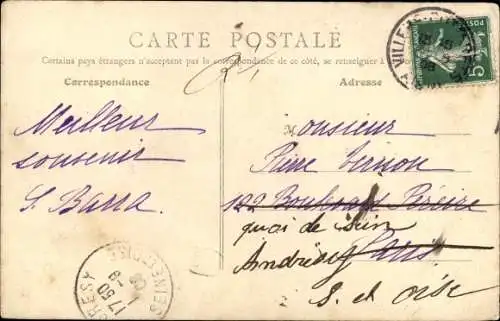 CARTE POSTALE
Certains pays étrangers n'acceptent pas la correspondance de ce côté, se renseigner à
Correspondance
Adresse
Meilleur
souvenir
S. Barra
Monsieur
Pierre Vernon
122 Boulevard Péreire
Paris
quai de Seine
Andrésy
S. et Oise
5
SEINE-ET-OISE
17 50